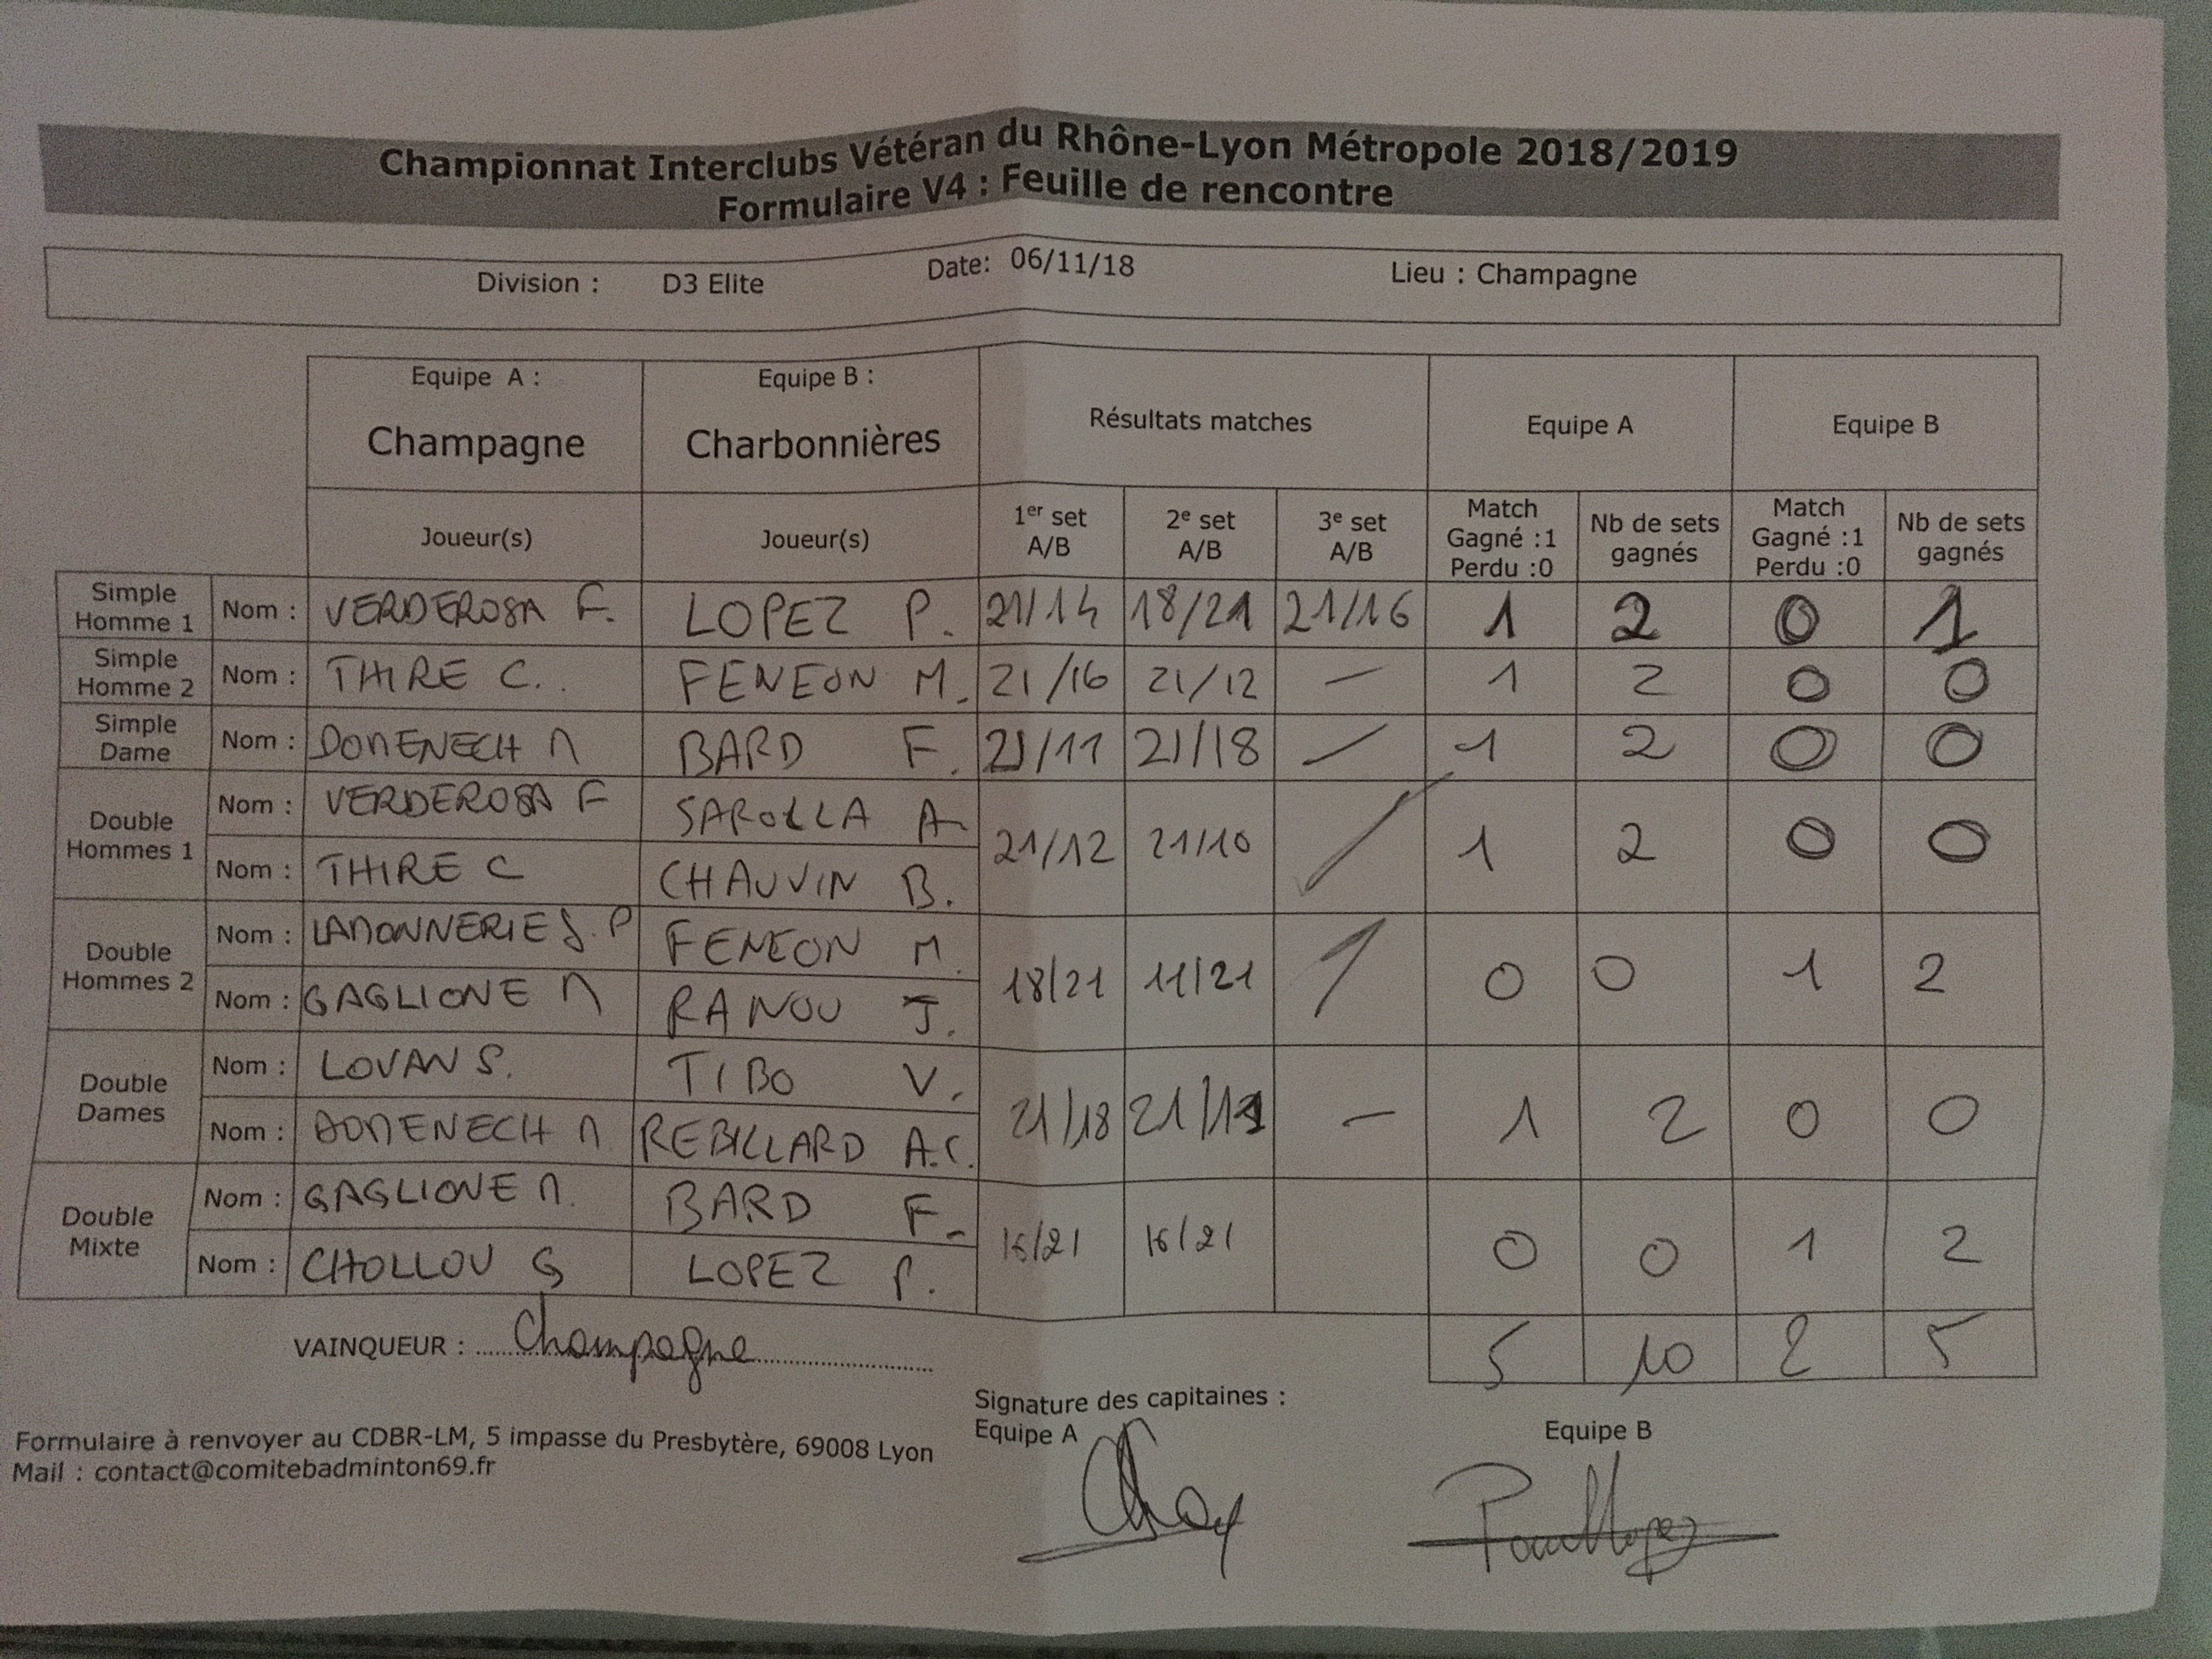 Championnat Interclubs Vétéran du Rhône-Lyon Métropole 2018/2019
Formulaire V4 : Feuille de rencontre
Division : D3 Elite Date: 06/11/18 Lieu : Champagne
Equipe A : Equipe B :
Champagne Charbonnières Résultats matches Equipe A Equipe B
Joueur(s) Joueur(s) 1er set A/B 2e set A/B 3e set A/B Match Gagné :1 Perdu :0 Nb de sets gagnés Match Gagné :1 Perdu :0 Nb de sets gagnés
Simple Homme 1 Nom : VERDEROSA F. LOPEZ P. 21/14 18/21 21/16 1 2 0 1
Simple Homme 2 Nom : THIRE C.. FENEON M. 21/16 21/12 — 1 2 0 0
Simple Dame Nom : DOMENECH M BARD F. 21/11 21/18 — 1 2 0 0
Double Hommes 1 Nom : VERDEROSA F SAROLLA A. 21/12 21/10 / 1 2 0 0
Nom : THIRE C CHAUVIN B.
Double Hommes 2 Nom : LAMONNERIE J.P FENEON M. 18/21 11/21 / 0 0 1 2
Nom : GAGLIONE M RANOU J.
Double Dames Nom : LOVAN S. TIBO V. 21/18 21/11 — 1 2 0 0
Nom : DOMENECH M REBILLARD A.C.
Double Mixte Nom : GAGLIONE M. BARD F. 16/21 16/21 0 0 1 2
Nom : CHOLLOU G LOPEZ P.
VAINQUEUR : Champagne 5 10 2 5
Signature des capitaines :
Equipe A Equipe B
Formulaire à renvoyer au CDBR-LM, 5 impasse du Presbytère, 69008 Lyon
Mail : contact@comitebadminton69.fr